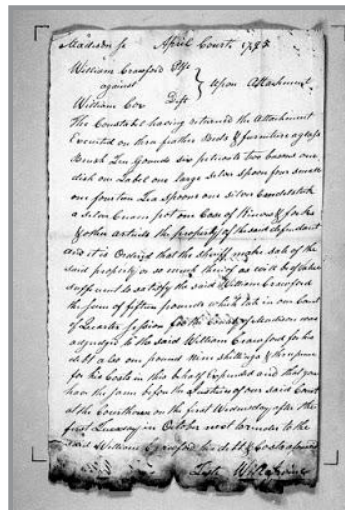 Madison Sc April Court 1795
William Crawford Plff
against } Upon Attachment
William Cox Dift
The Constable having returned the Attachment
Executed on three feather Beds & furniture a glass
Brush Ten Gounds six peticoats two basons one
dish one Ladel one large silver spoon four
one fourton Tea spoons one silver Candlestick
a silver Cream pot one Case of Knives & forks
& other articles the property of the said defendant
and it is Ordered that the Sheriff make sale of the
said property or so much thereof as will be
sufficent to satisfy the said William Crawford
the sum of fifteen pounds which late in our Court
of Quarter Session for the County of Madison was
adjudged to the said William Crawford for his
debt also one pound Nine shillings & three pence
for his Costs in this behalf Expended and that you
have the same before the Justices of our said Court
at the Courthouse on the first Wednesday after the
first Tuesday in October next to render to the
said William Crawford his debt & Costs aforesaid
Test Will Irvine